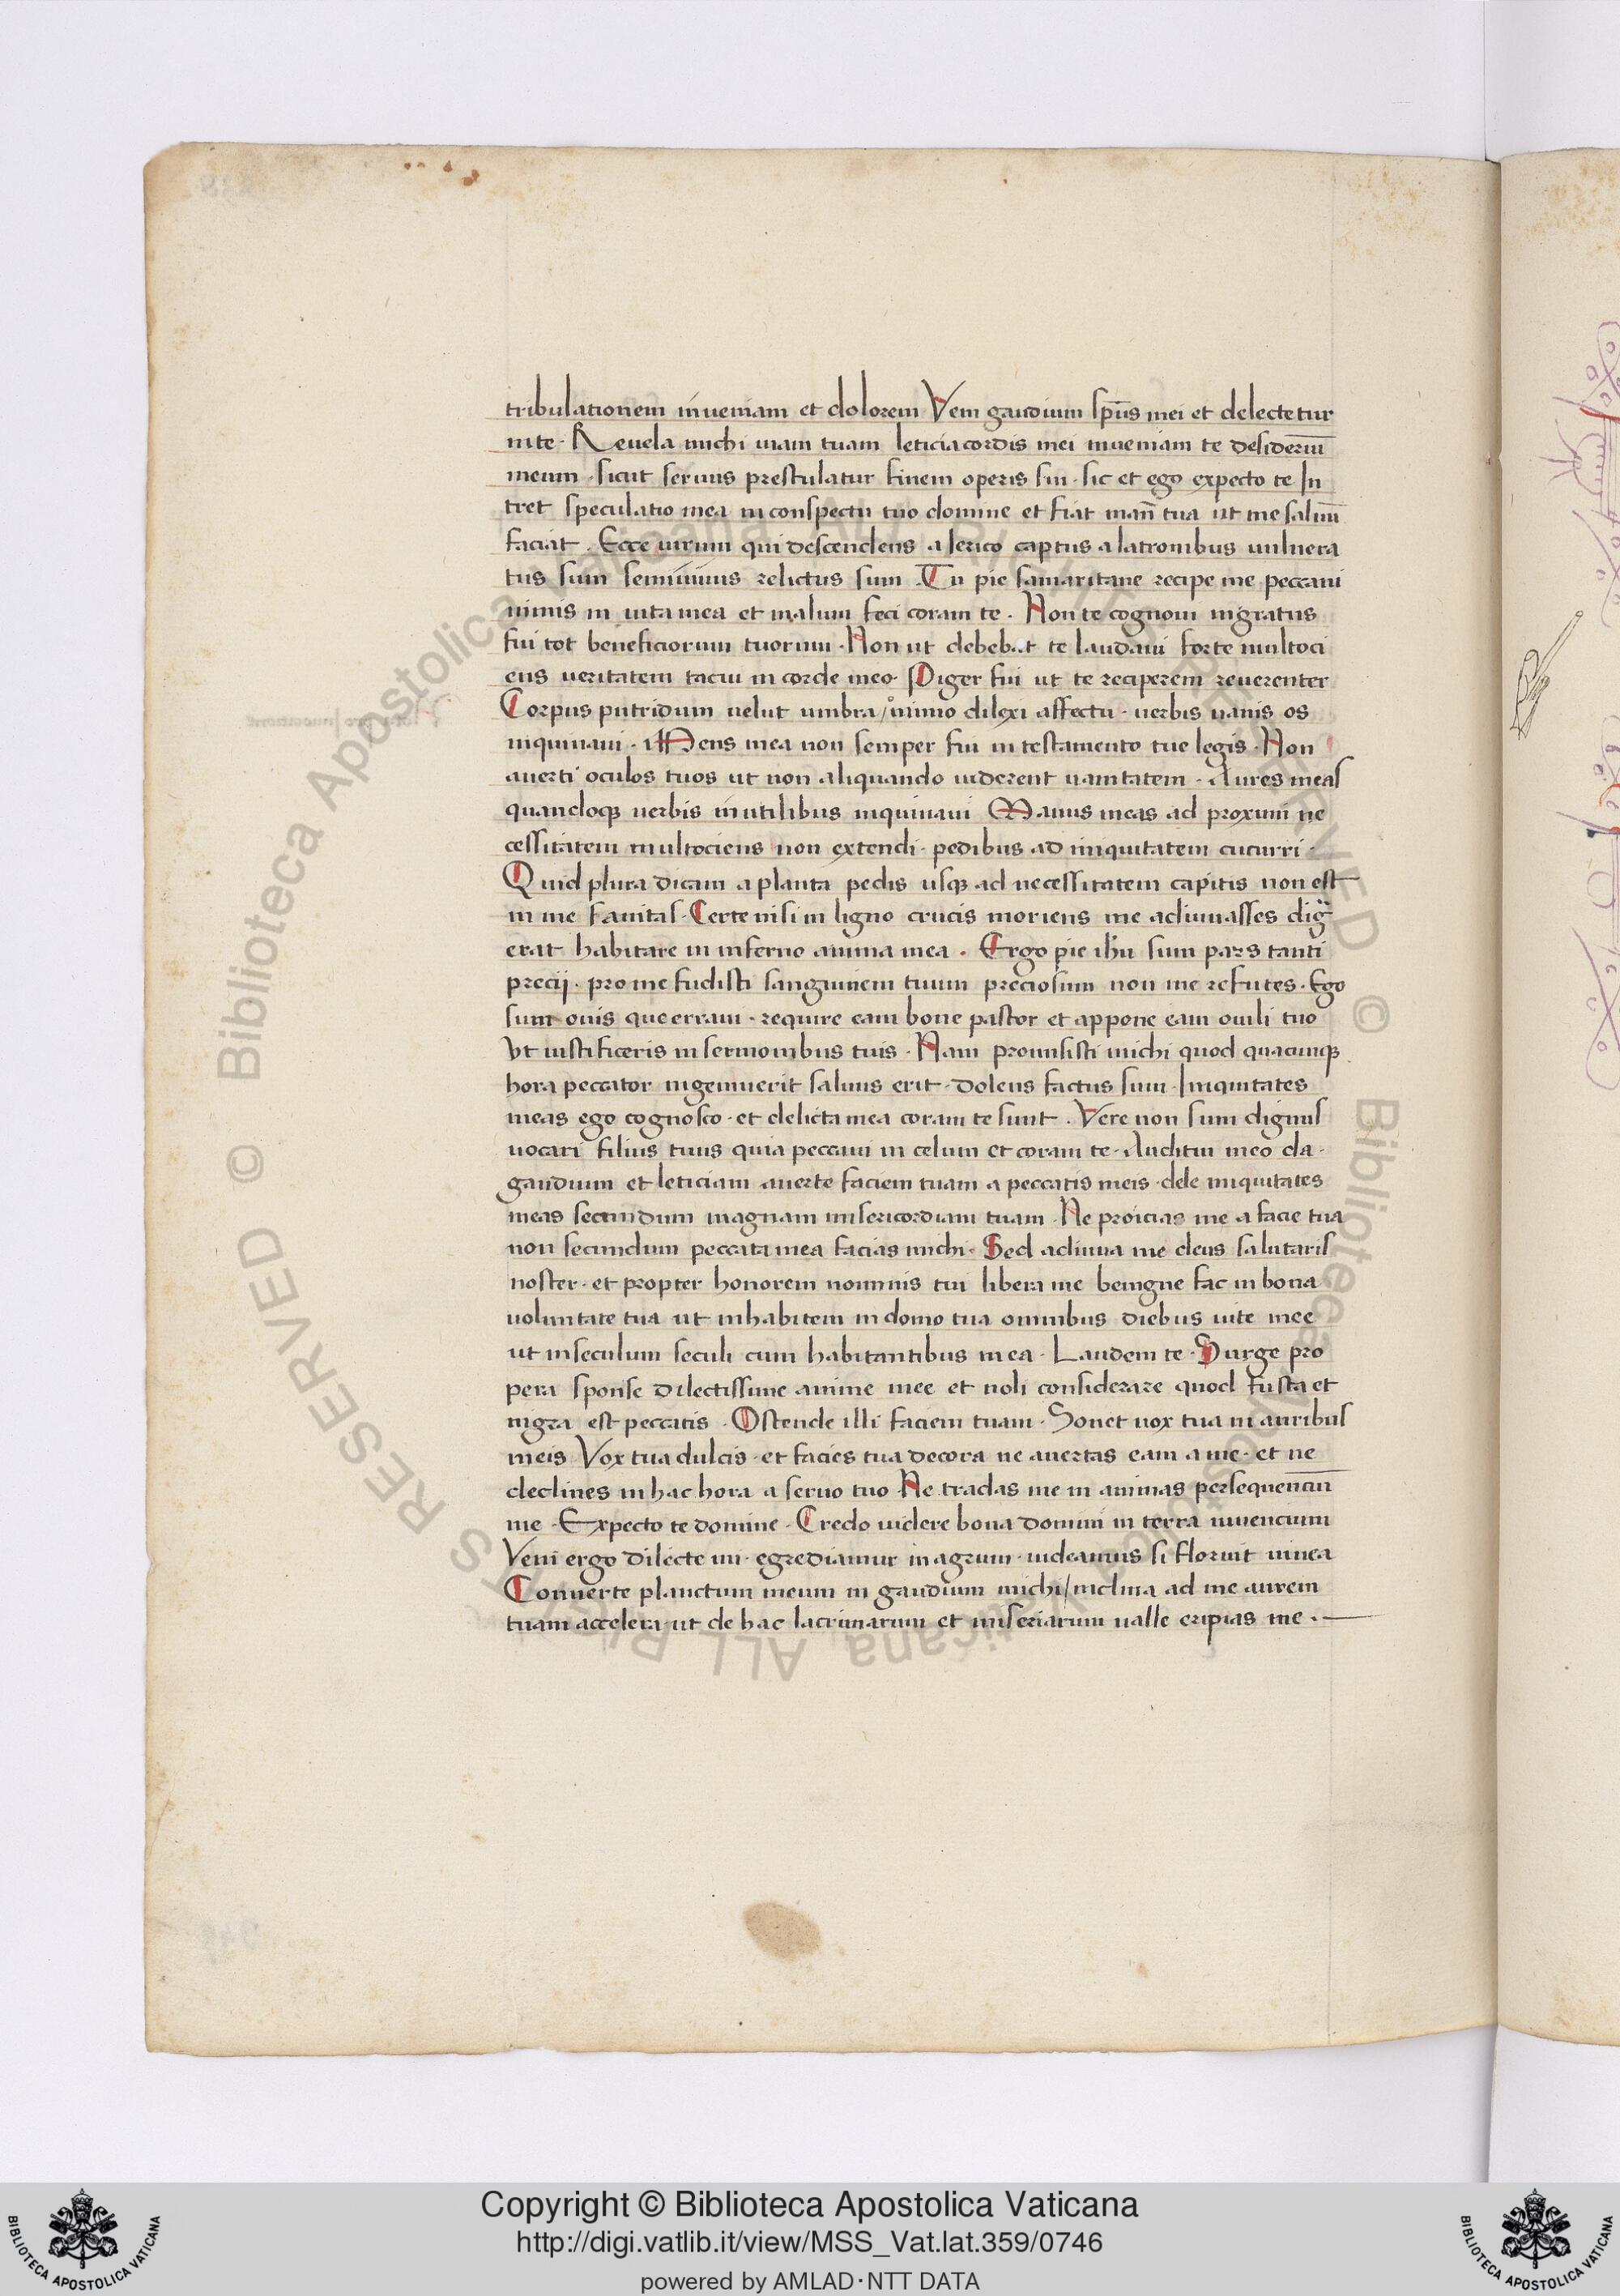 tribulationem inueniam et dolorem Veni gaudium sp̅us mei et delectetur
in te · Reuela michi uiam tuam leticia cordis mei inueniam te desideriū
meum · sicut seruus prestulatur finem operis sui · sic et ego expecto te In
tret speculatio mea in conspectu tuo domine et fiat man̄ tua ut me saluū
faciat · Ecce uirum qui descendens a Ierico captus a latronibus uulnera
tus sum semiuiuus relictus sum · Tu pie samaritane recipe me peccaui
nimis in uita mea et malum feci coram te · Non te cognoui ingratus
fui tot beneficiorum tuorum · Non ut debebat te laudaui forte multoci
ens ueritatem tacui in corde meo · Piger fui ut te reciperem reuerenter
Corpus putridum uelut umbra / nimio dilexi affectu · uerbis uanis os
inquinaui · Mens mea non semper fui in testamento tue legis · Non
auerti oculos tuos ut non aliquando uiderent uanitatem · Aures meas
quandoqȝ uerbis inutilibus inquinaui Manus meas ad proximi ne
cessitatem multociens non extendi · pedibus ad iniquitatem cucurri ·
Quid plura dicam a planta pedis usqȝ ad necessitatem capitis non est
in me sanitas · Certe nisi in ligno crucis moriens me adiuuasses
erat habitare in inferno anima mea · Ergo pie ihu sum pars tanti
precij · pro me fudisti sanguinem tuum preciosum non me refutes · Ego
sum ouis que erraui · require eam bone pastor et appone eam ouili tuo
Vt iustificeris in sermonibus tuis · Nam promisisti michi quod quacunqȝ
hora peccator ingemuerit saluus erit · dolens factus sum · Iniquitates
meas ego cognosco · et delicta mea coram te sunt · Vere non sum dignus
uocari filius tuus quia peccaui in celum et coram te · Auditui meo da ·
gaudium et leticiam auerte faciem tuam a peccatis meis · dele iniquitates
meas secundum magnam misericordiam tuam · Ne proicias me a facie tua
non secundum peccata mea facias michi · Sed adiuua me deus salutaris
noster · et propter honorem nominis tui libera me benigne fac in bona
uoluntate tua ut inhabitem in domo tua omnibus diebus uite mee
ut in seculum seculi cum habitantibus in ea · Laudem te · Surge pro
pera sponse dilectissime anime mee et noli considerare quod fusta et
nigra est peccatis · Ostende illi faciem tuam · Sonet uox tua in auribus
meis Vox tua dulcis · et facies tua decora ne auertas eam a me · et ne
declines in hac hora a seruo tuo Ne tradas me in animas persequenciū
me · Expecto te domine · Credo uidere bona domini in terra uiuencium
Veni ergo dilecte mi · egrediamur in agrum · uideamus si floruit uinea
Conuerte planctum meum in gaudium michi / inclina ad me aurem
tuam accelera · ut de hac lacrimarum et miseriarum ualle eripias me ·
© Biblioteca Apostolica Vaticana ALL RIGHTS RESERVED © Biblioteca Apostolica Vaticana ALL RIGHTS RESERVED
BIBLIOTECA APOSTOLICA VATICANA
Copyright © Biblioteca Apostolica Vaticana
http://digi.vatlib.it/view/MSS_Vat.lat.359/0746
powered by AMLAD·NTT DATA
BIBLIOTECA APOSTOLICA VATICANA